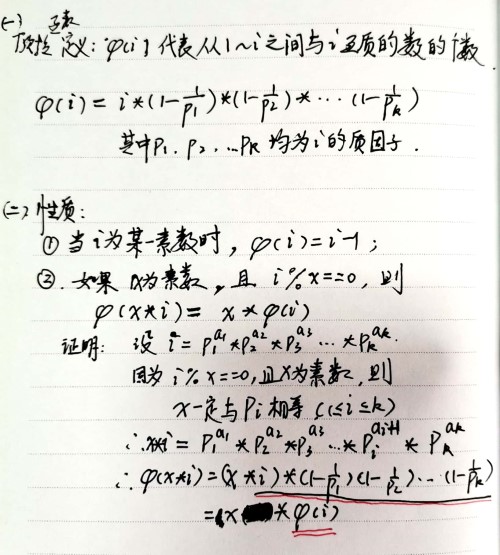 (一)
定义: φ(i) 代表从1~i之间与i互质的数的个数
φ(i) = i*(1-1/p1)*(1-1/p2)*…(1-1/pk)
其中p1、p2、…pk 均为i的质因子.
(二) 性质:
① 当i为某一素数时, φ(i)=i-1;
②. 如果x为素数, 且 i%x==0, 则
φ(x*i) = x*φ(i)
证明: 设 i = p1^a1*p2^a2*p3^a3…*pk^ak.
因为 i%x==0, 且x为素数, 则
x一定与Pi相等 (1≤i≤k)
∴x*i = p1^a1*p2^a2*p3^a3…*pi^ai+1*pk^ak
∴φ(x*i)=(x*i)*(1-1/p1)(1-1/p2)…(1-1/pk)
=(x*φ(i)